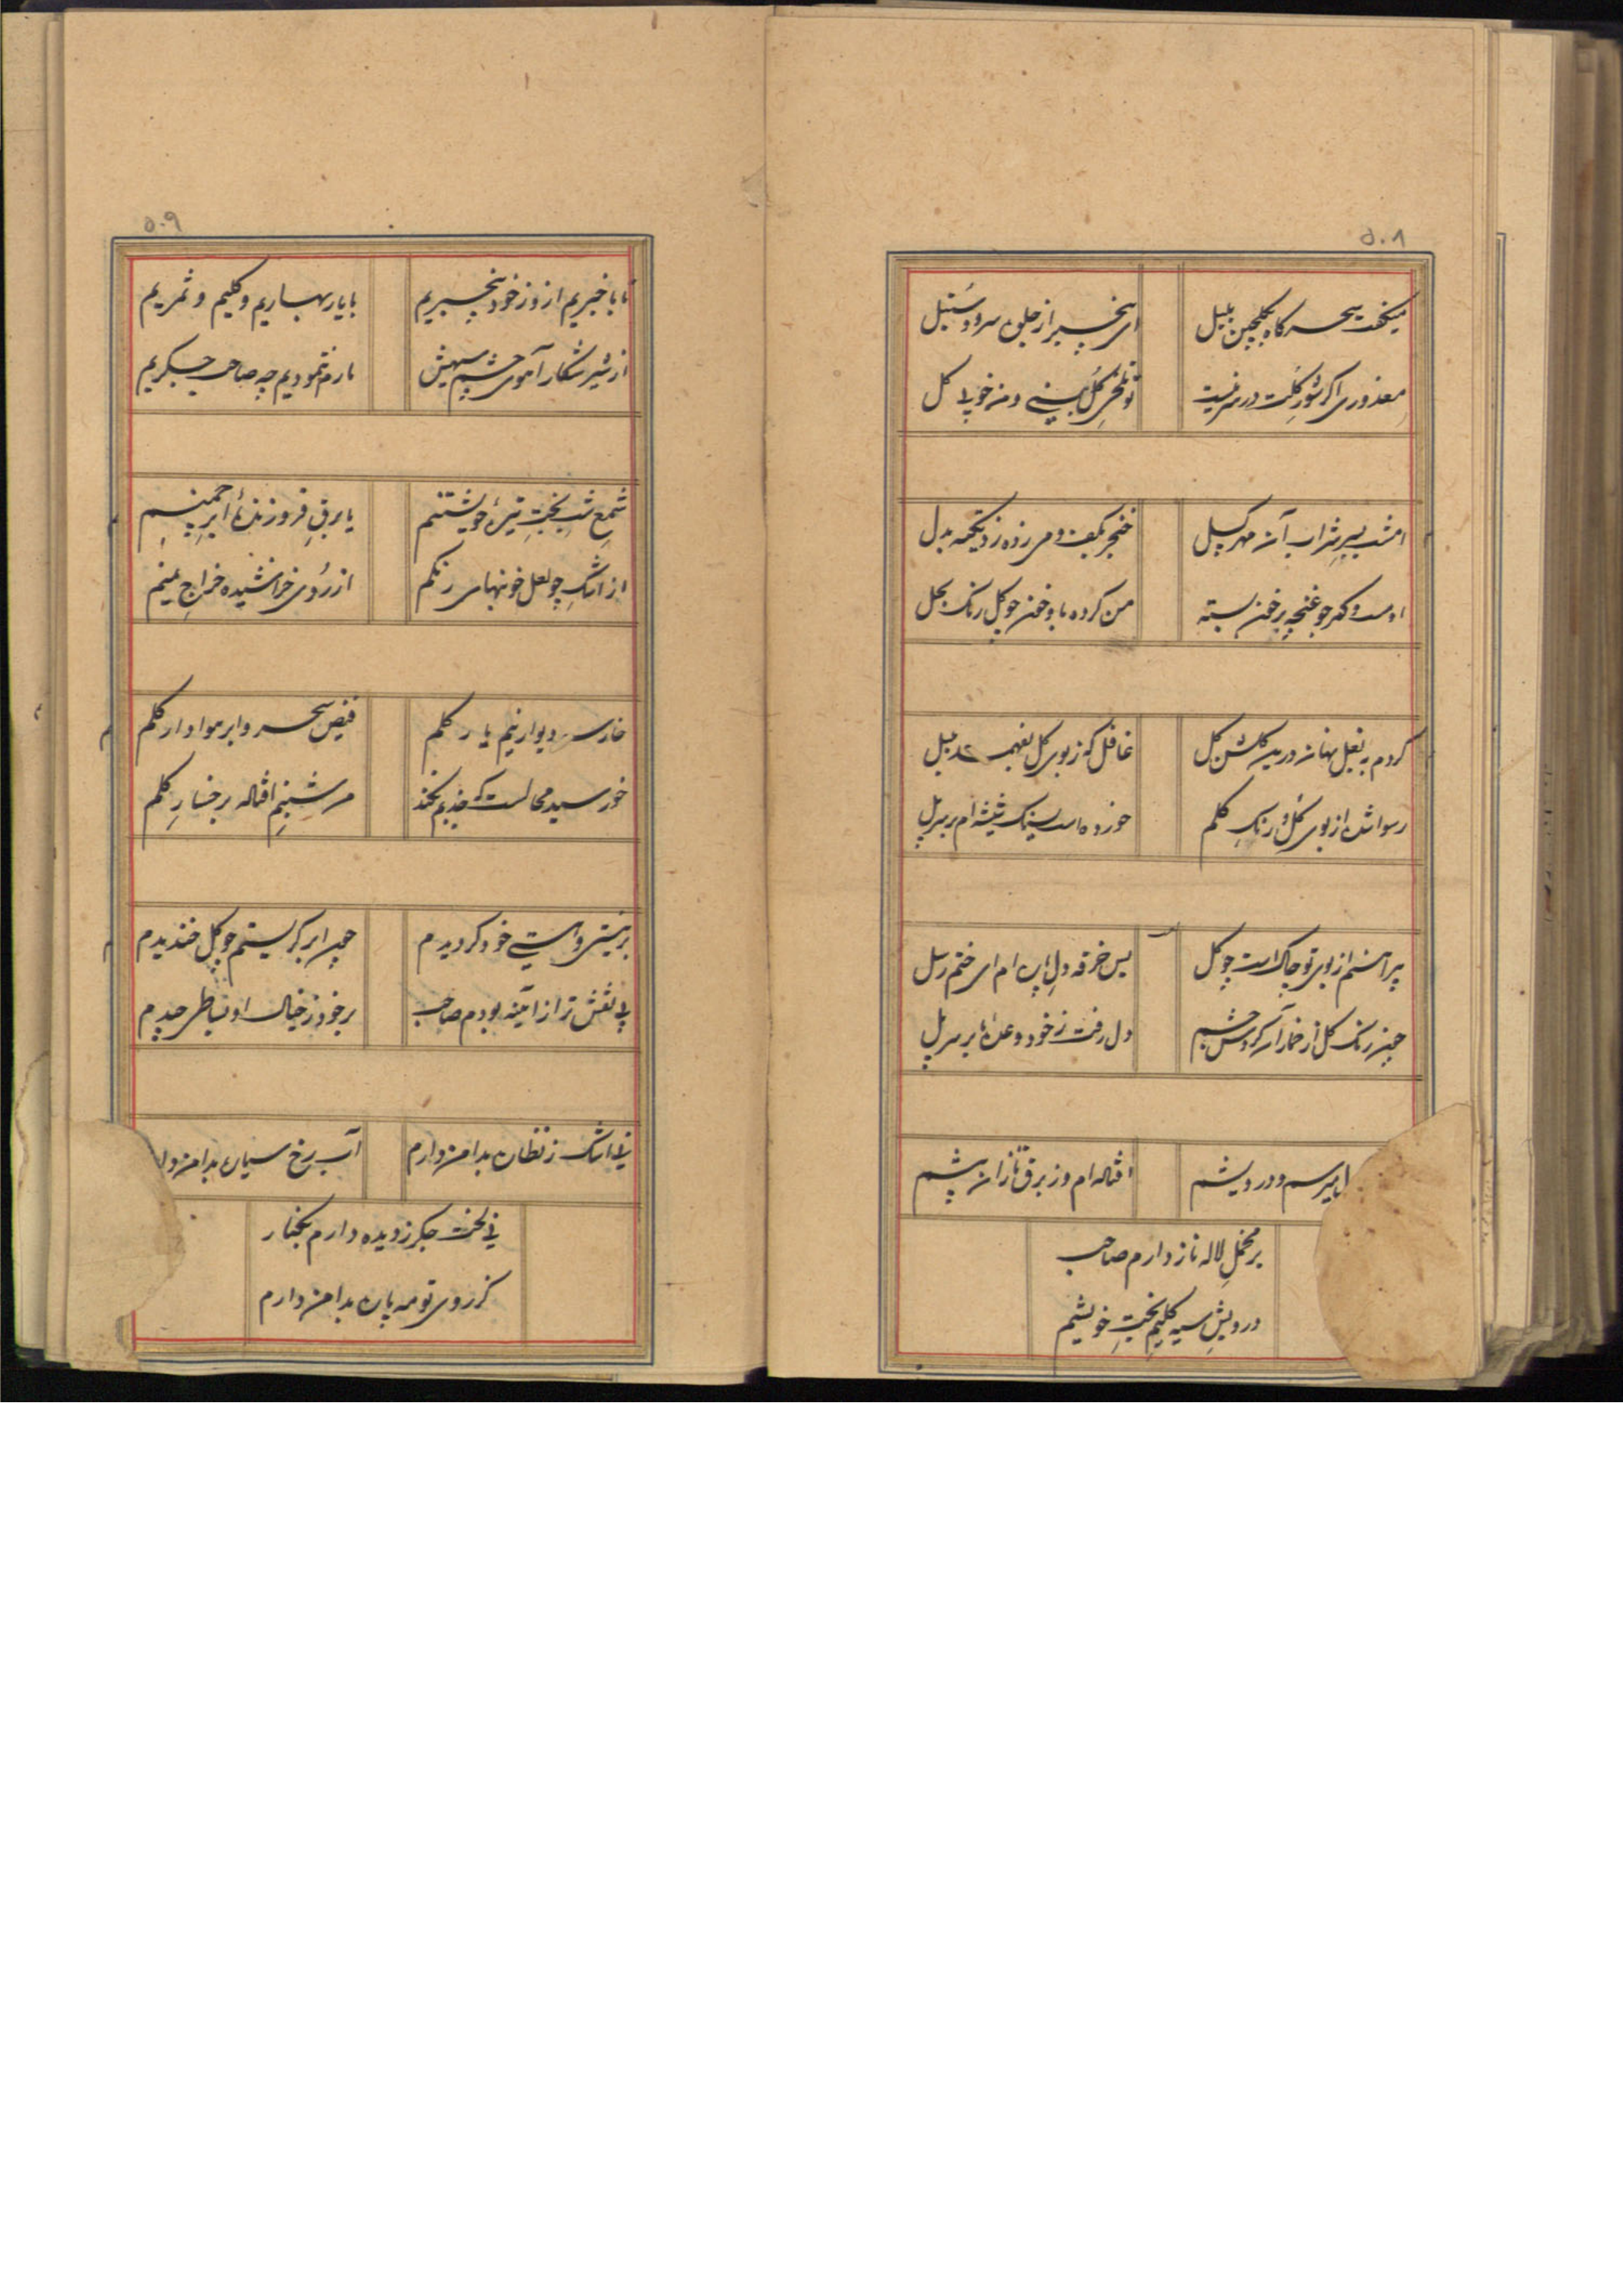 ۵۰۸
میکفت سحرکاه بکلچین بلبل
ای بیخبر از جلوه سرو و سنبل
معذوری اکر شور کلت در سر نیست
کل بینی و من خوبی کل
امشب بسر شراب آن مهر کسل
خنجر بکف و می زده زد تکمه بدل
او دست و کمر چو غنچه بر خون بسته
من کرده باو خون چو کل رنک بحل
کردم به بغل نهان در یده کلشن کل
غافل که ز بوی کل بفهمد بلبل
رسوا شده از بوی کل و رنک کلم
خورده است بسنک شیشه ام بر سر پل
پیراهنم از بوی تو چاک است چو کل
بس خرقه دل ام ای ختم رسل
چون رنک کل از خمار آن کردش چشم
دل رفت ز خود وعده ما بر سر پل
امیرم و درویشم
افتاده ام و ز برق تازان پیشم
بر مخمل لاله ناز دارم صاحب
درویش سیه کلیم بخت خویشم
۵۰۹
ما با خبریم از و ز خود بیخبریم
با یار بهاریم و کلیم و ثمریم
از شیر شکار آهوی چشم سیهش
ما رم ننمودیم چه صاحب جیکریم
شمع شب بخت تیره خویشتنم
یا برق فروزنده ابر چمنم
از اشک چو لعل خونبهای رنکم
از روی خراشیده خراج یمنم
خار سر دیوار نیم یار کلم
فیض سحر و ابر هوادار کلم
خورسید محالست که جذبم نکند
من شبنم افتاده بر خسار کلم
بر نیستی و هستی خود کردیدم
چون ابر کریستم چو کل خندیدم
بی نقش تر از آینه بودم صاحب
بر خود ز خیال او بساطی چیدم
نی اشک ز نظاره بدامن دارم
آب رخ سیاره بدامن
نی لخت جکر ز دیده دارم بکنار
کز روی تو مه پاره بدامن دارم